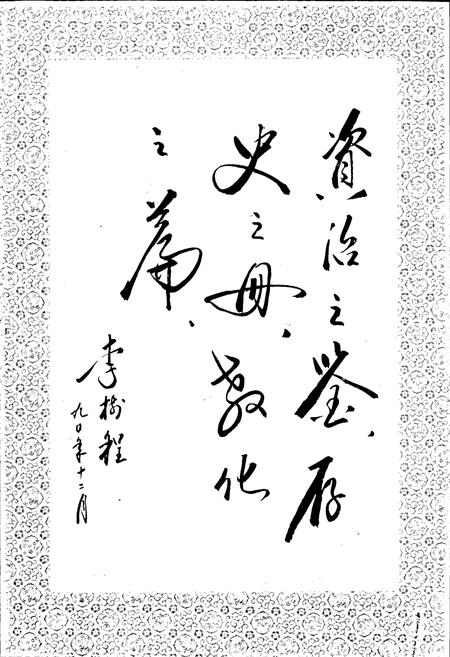 資治之鉴、存
史之册、教化
之篇、
李树程
九〇年十二月